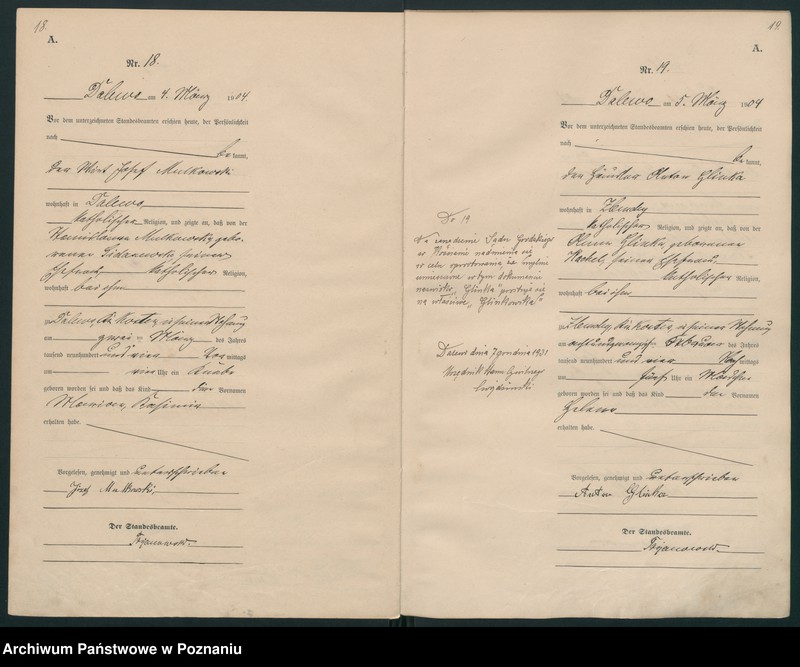 18.
A.
Nr. 18.
Dalewo am 4. März 1904
Vor dem unterzeichneten Standesbeamten erschien heute, der Persönlichkeit
nach
bekannt,
der Wirt Josef Mulkowski
wohnhaft in Dalewo
katholischer Religion, und zeigte an, daß von der
Stanislawa Mulkowska gebo-
renen seiner
Ehefrau katholischer Religion,
wohnhaft bei ihm
zu Dalewo, in seiner Wohnung
am zwei März des Jahres
tausend neunhundert und vier Vormittags
um vier Uhr ein Knabe
geboren worden sei und daß das Kind die Vornamen
Marian, Kasimir
erhalten habe.
Vorgelesen, genehmigt und unterschrieben
Józef Mulkowski
Der Standesbeamte.
Trojanowski
19.
A.
Nr. 19.
Dalewo am 5. März 1904
Vor dem unterzeichneten Standesbeamten erschien heute, der Persönlichkeit
nach
bekannt,
der Häusler Anton Glinka
wohnhaft in
katholischer Religion, und zeigte an, daß von der
Glinka, geborenen
seiner Ehefrau
katholischer Religion,
wohnhaft bei ihm
zu in seiner Wohnung
am achtundzwanzig Februar des Jahres
tausend neunhundert und vier Vormittags
um fünf Uhr ein Mädchen
geboren worden sei und daß das Kind den Vornamen
Helena
erhalten habe.
Vorgelesen, genehmigt und unterschrieben
Anton Glinka
Der Standesbeamte.
Trojanowski
Nr 19
Na Sądu Grodzkiego
w się
w celu sprostowania, że mylnie
umieszczone w tym dokumencie
nazwisko „Glinka" prostuje się
na właściwe „Glinkowska"
Dalewo dnia 7 grudnia 1931
Urzędnik Stanu Cywilnego
Archiwum Państwowe w Poznaniu